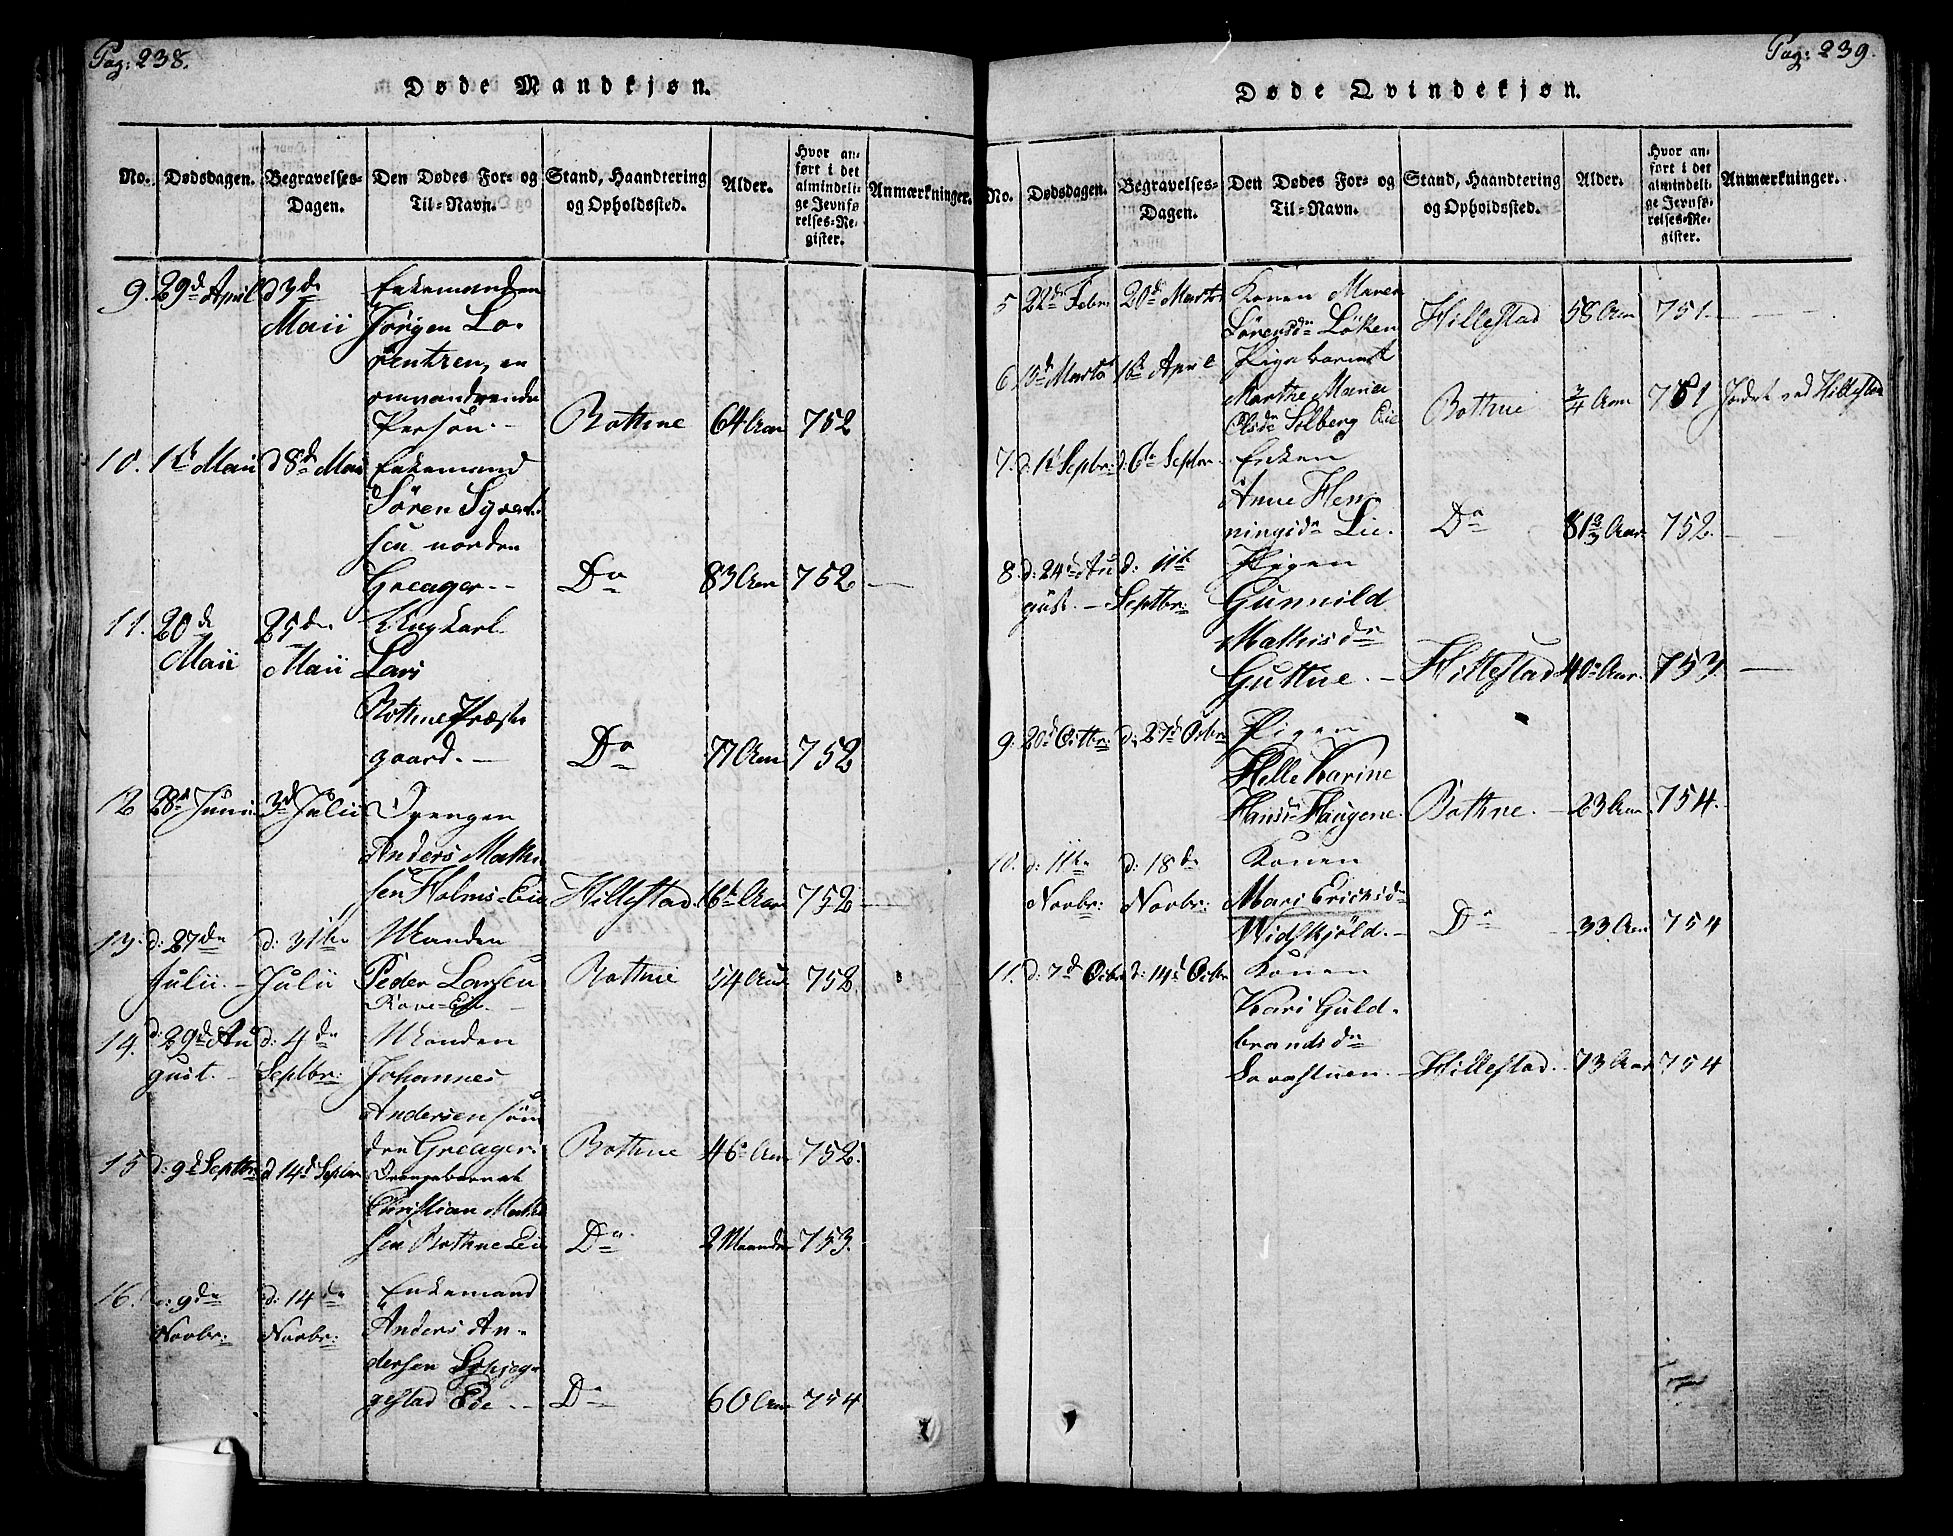 Pag: 238.
Døde Mandkjøn.
No. Dødsdagen. Begravelses-Dagen. Den Dødes For- og Til-Navn. Stand, Haandtering og Opholdssted. Alder. Hvor anført i det almindelige Jevnførelses-Register. Anmærkninger.
9. 29de April d 3de Enkemanden
Maii Jörgen Lo-
rentzen, en
omvandrende
Person.- Bothne 64 Aar 752
10. 1te Maii d 8de Maii Enkemand
Sören Syvert-
sen nordre
Greager.- Do 83 Aar 752.
11. 20de 25de Ungkarl
Maii Maii Lars
Bothne Præste
gaard.- Do 77 Aar 752
12 28de Junii 3de Julii Drengen
Anders Mathi
sen Holms-Eie Hillestad. 16 Aar 752
13. d: 27de d: 31te Manden
Julii.- Julii Peder Larsen Bothne 54 Aar 752.
Eie.
14. d: 29de Au d: 4de Manden
gust.- Septbr: Johannes
Andersen sön
dre Greager. Bothne 46 Aar 752.
15 d: 9de Septbr: d 14de Septbr Drengebarnet
Christian Math
sen Bothne Eie Do 2 Maaneder 753.
16. d: 9de d: 14de Enkemand
Novbr: Novbr: Anders An-
dersen
gestad Eie.- Do 60 Aar 754
Pag: 239.
Døde Qvindekjøn.
No. Dødsdagen. Begravelses-Dagen. Den Dødes For- og Til-Navn. Stand, Haandtering og Opholdssted. Alder. Hvor anført i det almindelige Jevnførelses-Register. Anmærkninger.
5 22de Febr: 20de Marts Konen Maren
Sörensdr Löken Hillestad 58 Aar 751.
6 Marts April Pigebarnet
Marthe Maria
Olsdr Solberg Eie Bothne 3/4 Aar 751 Jordet ved Hillestad
7. d: 1te Septbr: d: 6te Septbr. Enken
Anne Hen-
ningsdr Lie. Do 81 2/3 Aar 752.
8. d: 24de Au d: 11te Pigen
gust.- Septbr: Gunnild
Mathisdr
Guttue.- Hillestad 40 Aar. 753.
9. 20de Octbr: d: 27de Octbr Pigen
Helle Karine
Hansdr Haugene. Bothne.- 23 Aar 754.
10. d: 11te d: 18de Konen
Novbr: Novbr: Mari Ericksdr
Widskjöld.- Do 33 Aar 754
11. d: 7de Octbr d: 14de Octbr Konen
Kari Guld-
brandsdr
Lavastuen.- Hillestad. 73 Aar 754